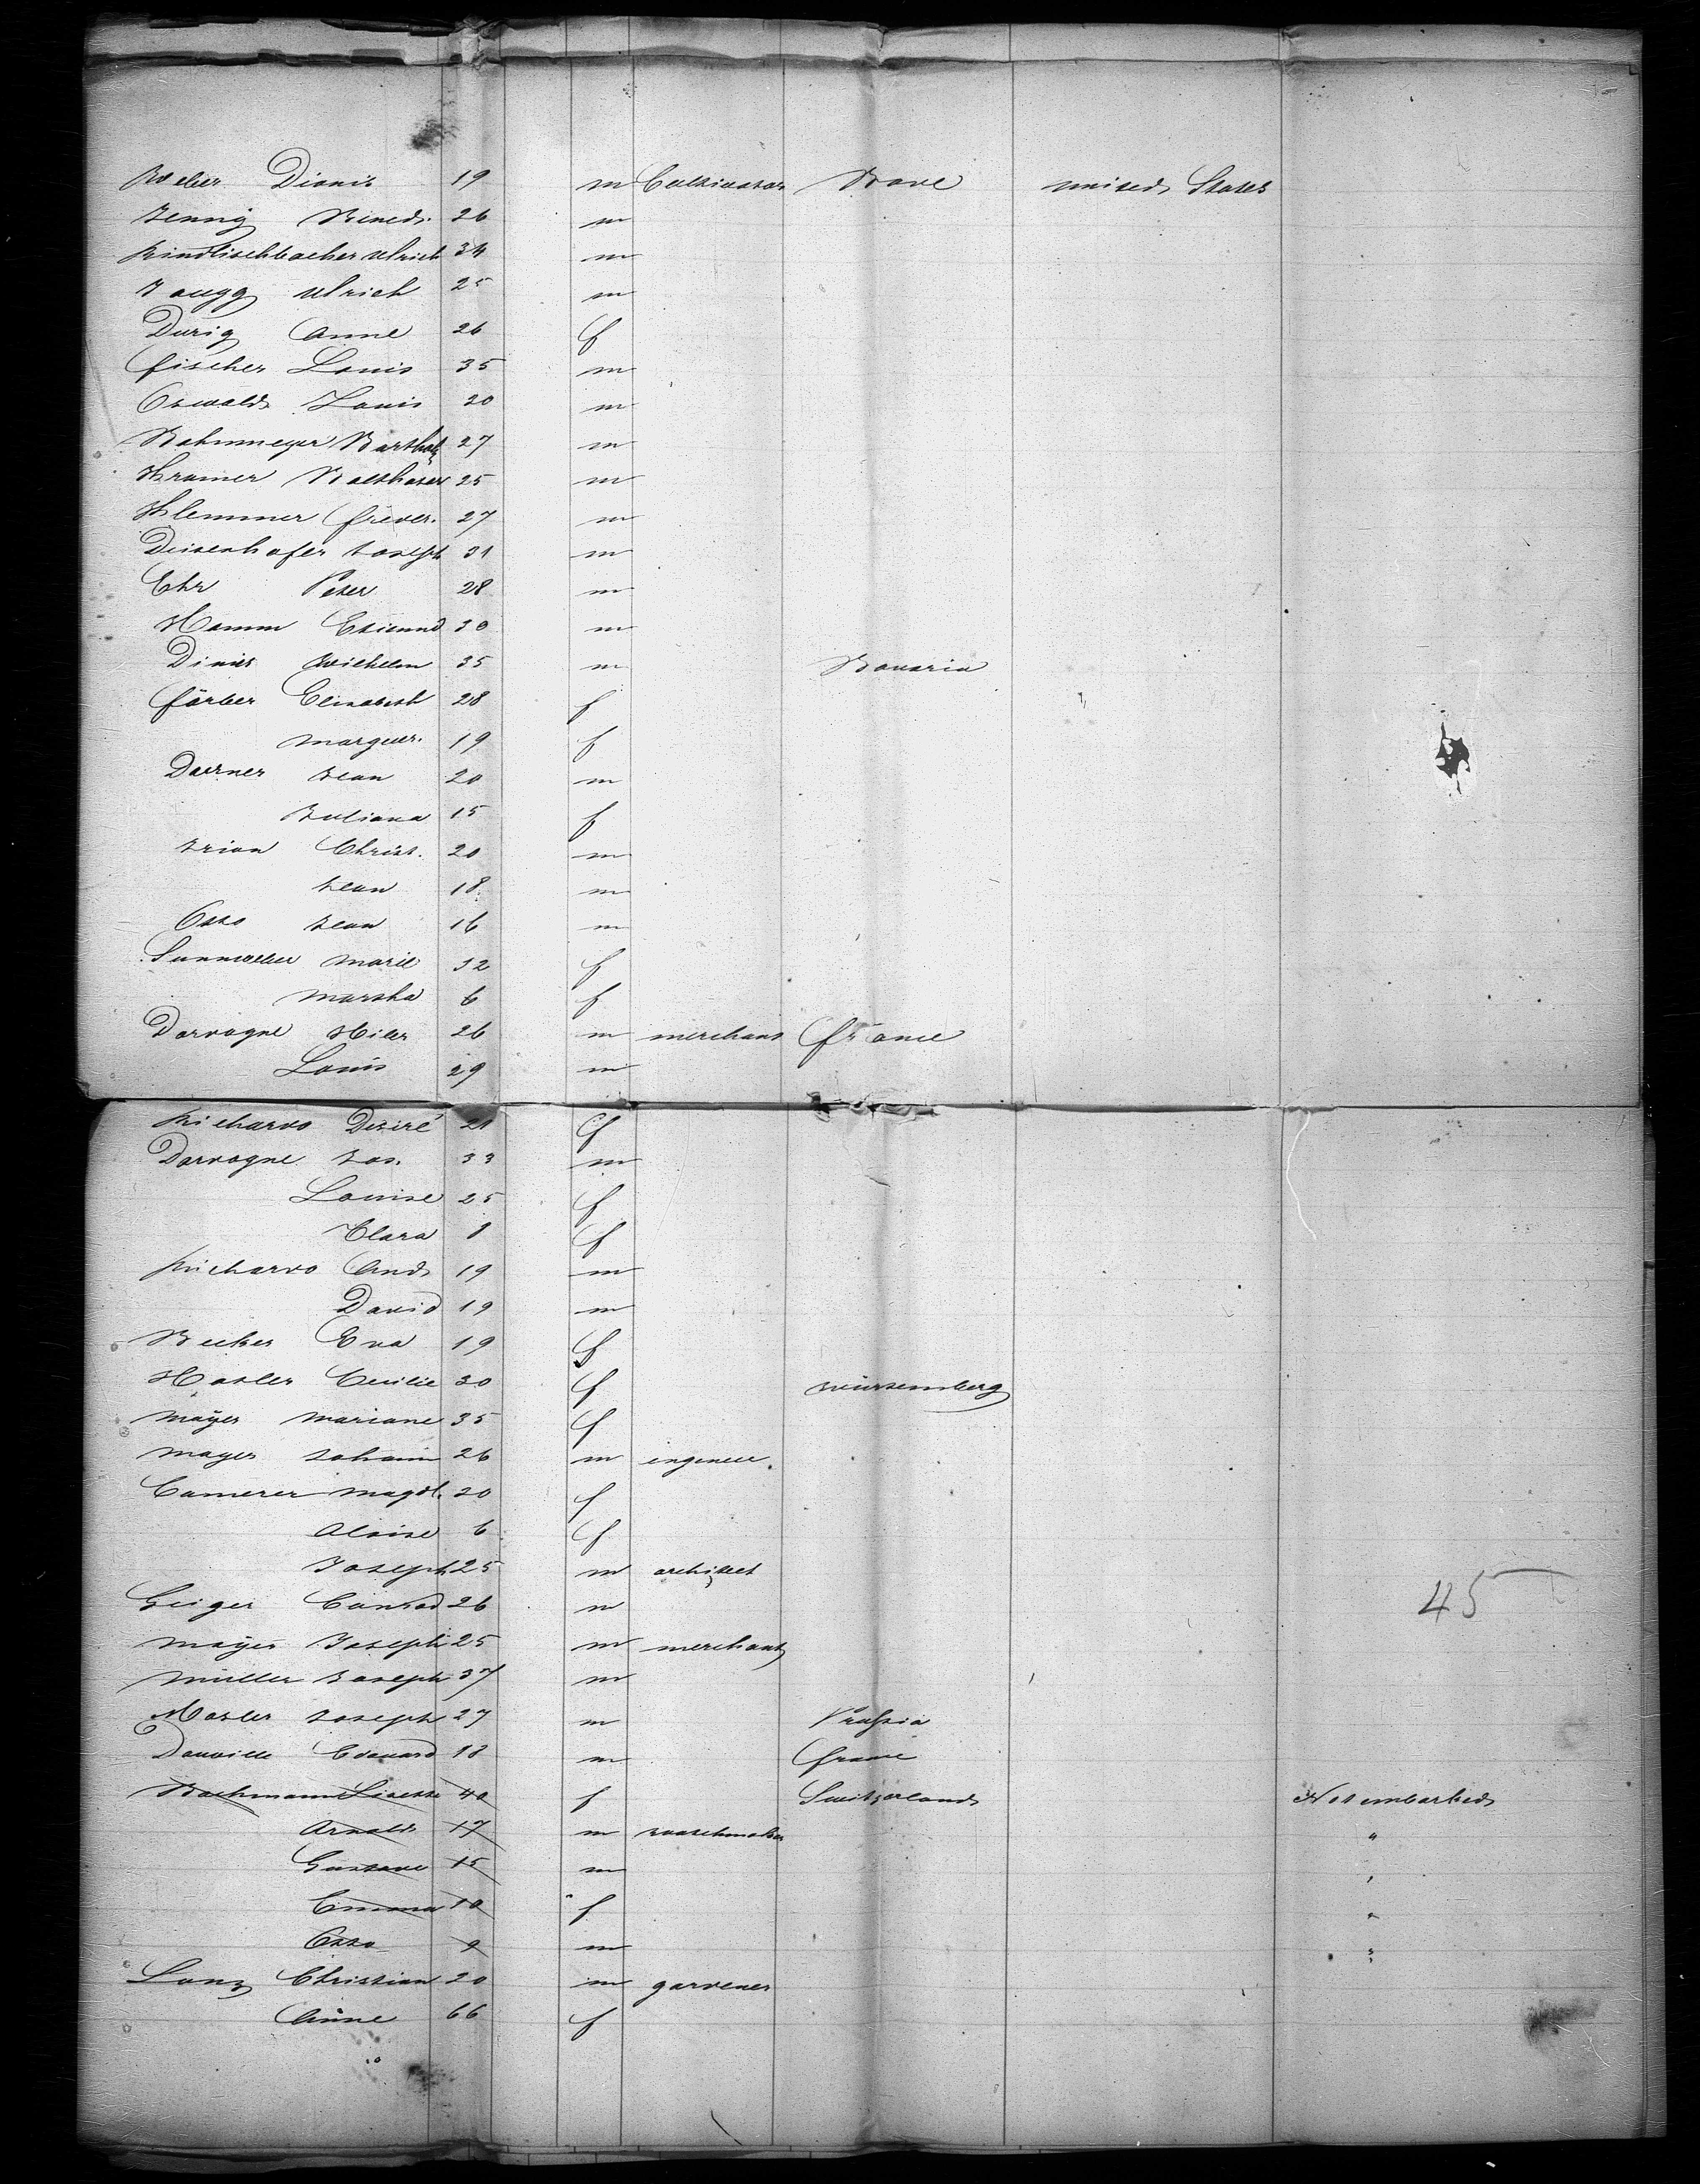 Weber Dionis 19 m Cultivator Bade united States
Jenny Bened. 26 m
Rindlisbacher Ulrich 34 m
Zaugg Ulrich 25 m
Durig Anne 26 f
fischer Louis 35 m
Oswald Louis 20 m
Bahnmeyer Barthol 27 m
Kramer Balthaser 25 m
Klemmer freder. 27 m
Deisenhofer Joseph 31 m
Ehr Peter 28 m
Hamm 30 m
Wilhelm 35 m Bavaria
färber Elisabeth 28 f
Marguer. 19 f
Doerner Jean 20 m
Juliana 15 f
Trion Christ. 20 m
Jean 18 m
Otto Jean 16 m
Marie 32 f
Martha 6 f
Darvogne 26 m merchant france
Louis 29 m
Richardo Desiré 21 f
Darvogne Jos. 33 m
Louise 25 f
Clara 1 f
Richardo And. 19 m
David 19 m
Becker Eva 19 f
Hasler Cecilie 30 f Würtemberg
Mayer Mariane 35 f
Mayer Johann 26 m
Camerer Magdl. 20 f
Aloise 6 f
Joseph 25 m architect
Geiger Conrad 26 m
Mayer Joseph 25 m merchant
Müller Joseph 37 m
Mosler Joseph 27 m Prussia
45
Danville Edouard 18 m france
Bachmann Lisette 40 f Switzerland Not embarked
Arnold 17 m watchmaker "
Gustave 15 m "
Emma 10 f "
Otto 9 m "
Lanz Christian 20 m gardener
Anne 66 f